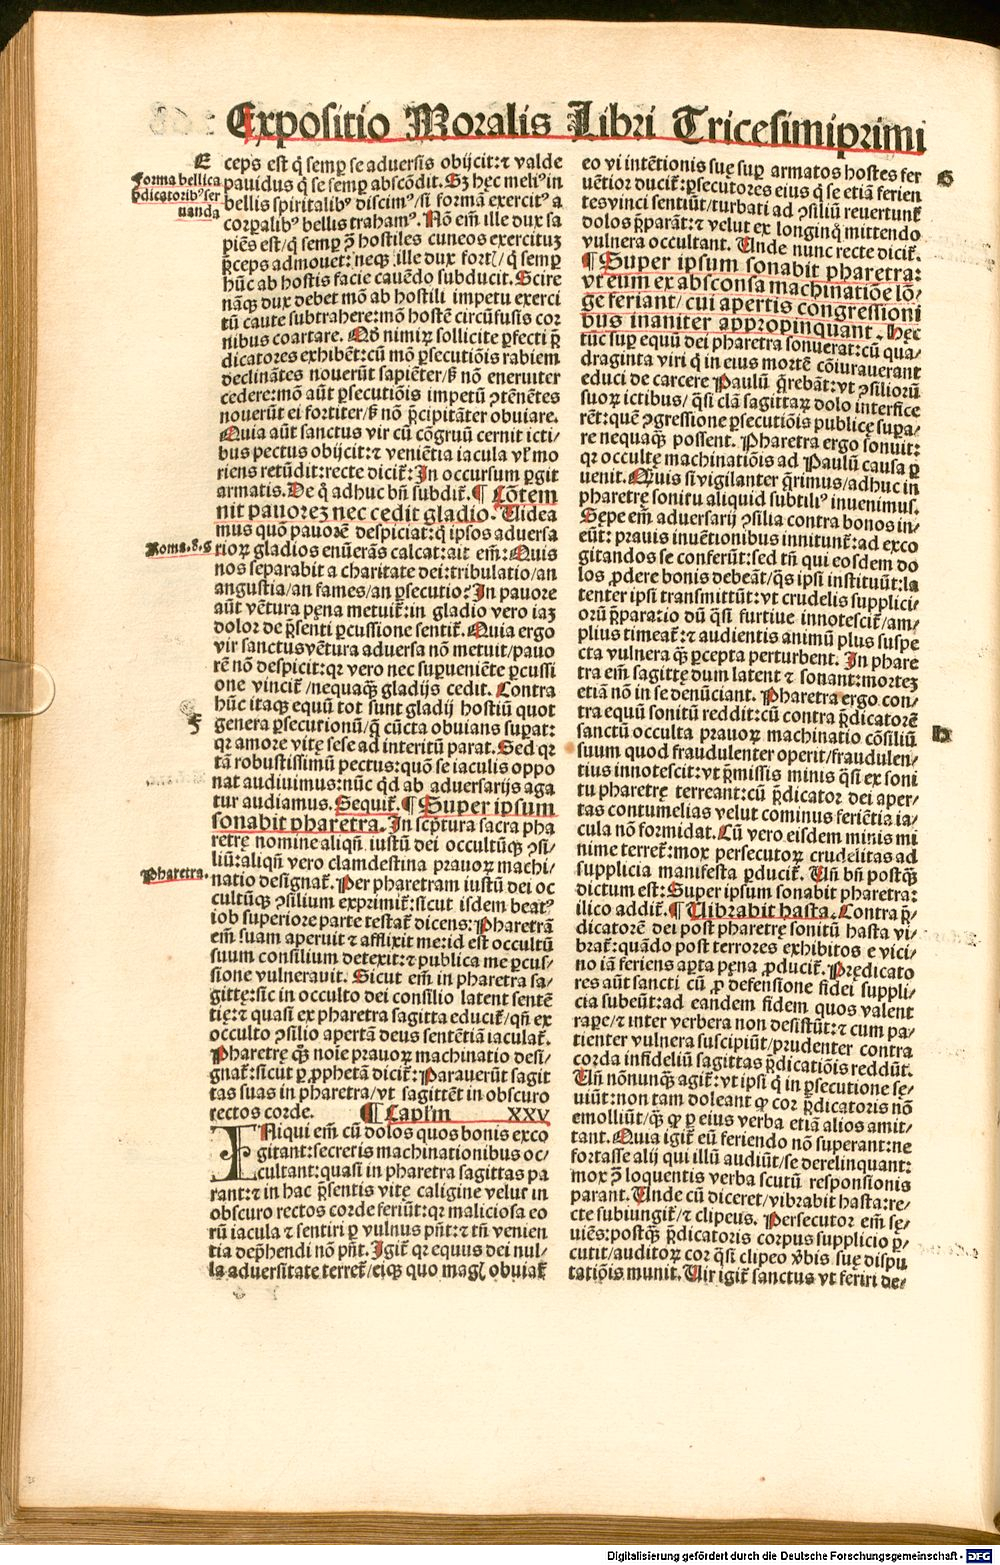 Expositio Moralis Libri Tricesimiprimi
E
Forma bellica
p̄dicatorib⁹ ser
uanda
ceps est q̄ semꝑ se aduersis obijcit: ⁊ valde
pauidus q̄ se semꝑ abscōdit. Sꝫ hęc meli⁹ in
bellis spiritalib⁹ discim⁹/ si formā exercit⁹ a
corꝑalib⁹ bellis traham⁹. Nō em̄ ille dux sa
piēs est/ q̄ semꝑ ꝯ̄ hostiles cuneos exercituꝫ
p̄ceps admouet: neqꝫ ille dux fort̛/ q̄ semꝑ
hūc ab hostis facie cauēdo subducit. Scire
nāqꝫ dux debet mō ab hostili impetu exerci
tū caute subtrahere: mō hostē circūfusis cor
nibus coartare. Qḋ nimiꝝ sollicite ꝑfecti p̄
dicatores exhibēt: cū mō ꝑsecutiōis rabiem
declinātes nouerūt sapiēter/ ß nō eneruiter
cedere: mō aūt ꝑsecutiōis impetū ꝯtēnētes
nouerūt ei fortiter/ ß nō p̄cipitāter obuiare.
Quia aūt sanctus vir cū cōgruū cernit icti/
bus pectus obijcit: ⁊ veniētia iacula vl̛ mo
riens retūdit: recte dicit̄: In occursum ꝑgit
armatis. De q̄ adhuc bn̄ subdit̄. ¶ Cōtem
nit pauoreꝫ nec cedit gladio. Uidea
mus quō pauorē despiciat: q̄ ipsos aduersa
Roma. 8. G
rioꝝ gladios enūerās calcat: ait em̄: Quis
nos separabit a charitate dei: tribulatio/ an
angustia/ an fames/ an ꝑsecutio? In pauore
aūt vētura pęna metuit̄: in gladio vero iaꝫ
dolor de p̄senti ꝑcussione sentit̄. Quia ergo
vir sanctus vētura aduersa nō metuit/ pauo
rē nō despicit: qꝛ vero nec suꝑueniēte ꝑcussi
one vincit̄/ nequaqꝫ gladijs cedit. Contra
hūc itaqꝫ equū tot sunt gladij hostiū quot
F
genera ꝑsecutionū/ q̄ cūcta obuians suꝑat:
qꝛ amore vitę sese ad interitū parat. Sed qꝛ
tā robustissimū pectus: quō se iaculis oppo
nat audiuimus: nūc qḋ ab aduersarijs aga
tur audiamus. Sequit̄. ¶ Super ipsum
sonabit pharetra. In scp̄tura sacra pha
retrę nomine aliqn̄ iustū dei occultūqꝫ ꝯsi/
liū: aliqn̄ vero clamdestina prauoꝝ machi/
Pharetra.
natio designat̄. Per pharetram iustū dei oc
cultūqꝫ ꝯsilium exprimit̄: sicut isdem beat⁹
iob superiore parte testat̄ dicens: Pharetrā
em̄ suam aperuit ⁊ afflixit me: id est occultū
suum consilium detexit: ⁊ publica me ꝑcus/
sione vulnerauit. Sicut em̄ in pharetra sa/
gittę: sic in occulto dei consilio latent sentē
tię: ⁊ quasi ex pharetra sagitta educit̄/ qn̄ ex
occulto ꝯsilio apertā deus sentētiā iaculat̄.
Pharetrę qꝫ noīe prauoꝝ machinatio desi/
gnat̄: sicut ꝑ ꝓphetā dicit̄: Parauerūt sagit
tas suas in pharetra/ vt sagittēt in obscuro
rectos corde. ¶ Caplm̄ XXV
INiqui em̄ cū dolos quos bonis exco
gitant: secretis machinationibus oc/
cultant: quasi in pharetra sagittas pa
rant: ⁊ in hac p̄sentis vitę caligine velut in
obscuro rectos corde feriūt: qꝛ maliciosa eo
rū iacula ⁊ sentiri ꝑ vulnus pn̄t: ⁊ tn̄ venien
tia dep̄hendi nō pn̄t. Igit̄ qꝛ equus dei nul/
la aduersitate terret̄/ eiqꝫ quo mag̛ obuiat̄
eo vi intētionis suę suꝑ armatos hostes fer
G
uētior ducit̄: ꝑsecutores eius q̄ se etiā ferien
tes vinci sentiūt/ turbati ad ꝯsiliū reuertunt̄
dolos p̄parāt: ⁊ velut ex longinq̄ mittendo
vulnera occultant. Unde nunc recte dicit̄.
¶ Super ipsum sonabit pharetra:
vt eum ex absconsa machinatiōe lō/
ge feriant/ cui apertis congressioni
bus inaniter appropinquant. Hęc
tūc suꝑ equū dei pharetra sonuerat: cū qua/
draginta viri q̄ in eius mortē cōiurauerant
educi de carcere Paulū q̄rebāt: vt ꝯsilioꝝ
suoꝝ ictibus/ q̄si clā sagittaꝝ dolo interfice
rēt: quē ꝯgressione ꝑsecutiōis publicę suꝑa/
re nequaqꝫ possent. Pharetra ergo sonuit:
qꝛ occultę machinatiōis ad Paulū causa ꝑ
uenit. Quis si vigilanter q̄rimus/ adhuc in
pharetrę sonitu aliquid subtili⁹ inuenimus.
Sępe em̄ aduersarij ꝯsilia contra bonos in/
eūt: prauis inuētionibus innitunt̄: ad exco
gitandos se conferūt: sed tn̄ qui eosdem do
los ꝓdere bonis debeāt/ q̄s ipsi instituūt: la
tenter ipsi transmittūt: vt crudelis supplici/
orū p̄paratio dū q̄si furtiue innotescit̄/ am/
plius timeat̄: ⁊ audientis animū plus suspe
cta vulnera qꝫ ꝑcepta perturbent. In phare
tra em̄ sagittę dum latent ⁊ sonant: morteꝫ
etiā nō in se denūciant. Pharetra ergo con/
tra equū sonitū reddit: cū contra p̄dicatorē
sanctū occulta prauoꝝ machinatio cōsiliū
H
suum quod fraudulenter operit/ fraudulen/
tius innotescit: vt p̄missis minis q̄si ex soni
tu pharetrę terreant: cū p̄dicator dei aper/
tas contumelias velut cominus feriētia ia/
cula nō formidat. Cū vero eisdem minis mi
nime terret̄: mox persecutoꝝ crudelitas ad
supplicia manifesta ꝑducit̄. Un̄ bn̄ postqꝫ
dictum est: Super ipsum sonabit pharetra:
ilico addit̄. ¶ Uibrabit hasta. Contra p̄/
dicatorē dei post pharetrę sonitū hasta vi/
brat̄: quādo post terrores exhibitos e vici/
no iā feriens aꝑta pęna ꝓducit̄. Prędicato
res aūt sancti cū ꝓ defensione fidei suppli/
cia subeūt: ad eandem fidem quos valent
rape/ ⁊ inter verbera non desistūt: ⁊ cum pa/
tienter vulnera suscipiūt/ prudenter contra
corda infideliū sagittas p̄dicatiōis reddūt.
Un̄ nōnunqꝫ agit̄: vt ipsi q̄ in ꝑsecutione sę/
uiūt: non tam doleant ꝙ cor p̄dicatoris nō
emolliūt/ qꝫ ꝙ ꝑ eius verba etiā alios amit/
tant. Quia igit̄ eū feriendo nō superant: ne
fortasse alij qui illū audiūt/ se derelinquant:
mox ꝯ̄ loquentis verba scutū responsionis
parant. Unde cū diceret/ vibrabit hasta: re/
cte subiungit̄/ ⁊ clipeus. Persecutor em̄ se/
uiēs: postqꝫ p̄dicatoris corpus supplicio ꝑ/
cutit/ auditoꝝ cor q̄si clipeo v̄bis suę dispu
tatiōis munit. Uir igit̄ sanctus vt feriri de/
Digitalisierung gefördert durch die Deutsche Forschungsgemeinschaft - DFG